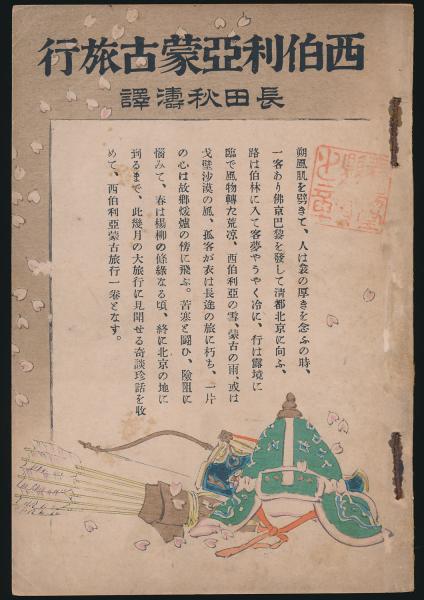 西伯利亞蒙古旅行
長田秋濤譯
朔風肌を劈きて、人は衾の厚きを念ふの時、
一客あり佛京巴黎を發して淸都北京に向ふ、
路は伯林に入て客夢やうやく冷に、行は露境に
臨で風物轉た荒凉、西伯利亞の雪、蒙古の雨、或は
戈壁沙漠の風、孤客が衣は長途の旅に朽ち、一片
の心は故鄕煖爐の傍に飛ぶ。苦寒と鬪ひ、險阻に
惱みて、春は楊柳の條綠なる頃、終に北京の地に
到るまで、此幾月の大旅行に見聞せる奇談珍話を收
めて、西伯利亞蒙古旅行一卷となす。